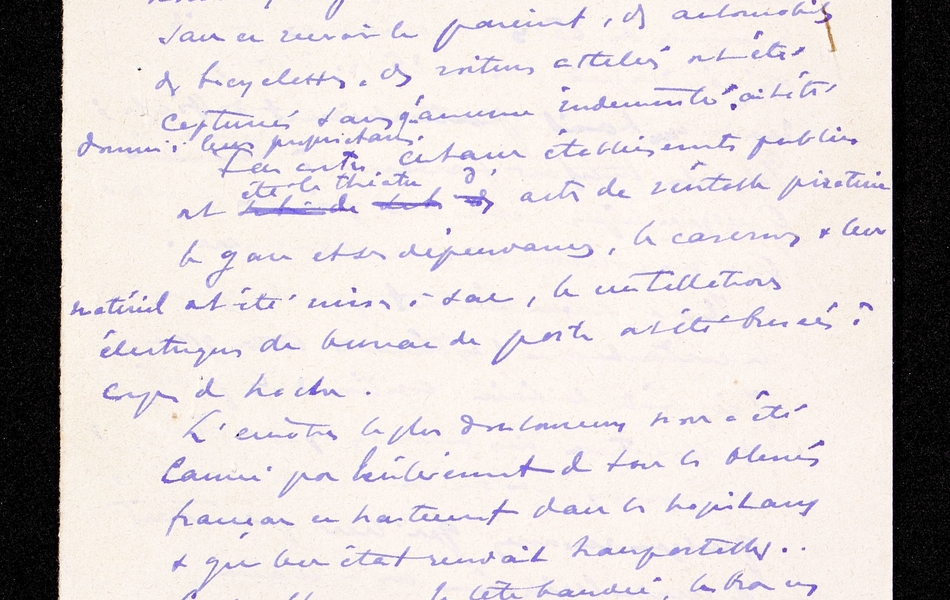 sans en recevoir le paiement, des automobiles
des bicyclettes, des voitures attelées ont été
capturées sans qu'aucune indemnité ait été
donnée à leurs propriétaires.
certains établissements publics
été le théâtre
ont de des actes de véritable piraterie
la gare et ses dépendances, les casernes & leur
matériel ont été mises à sac, les installations
électriques du bureau de poste ont été brisées à
coups de hache.
L'émotion la plus douloureuse nous a été
causée par l'enlèvement de tous les blessés
français en traitement dans les hôpitaux
& que leur état rendait transportables..
la tête bandée, les bras en